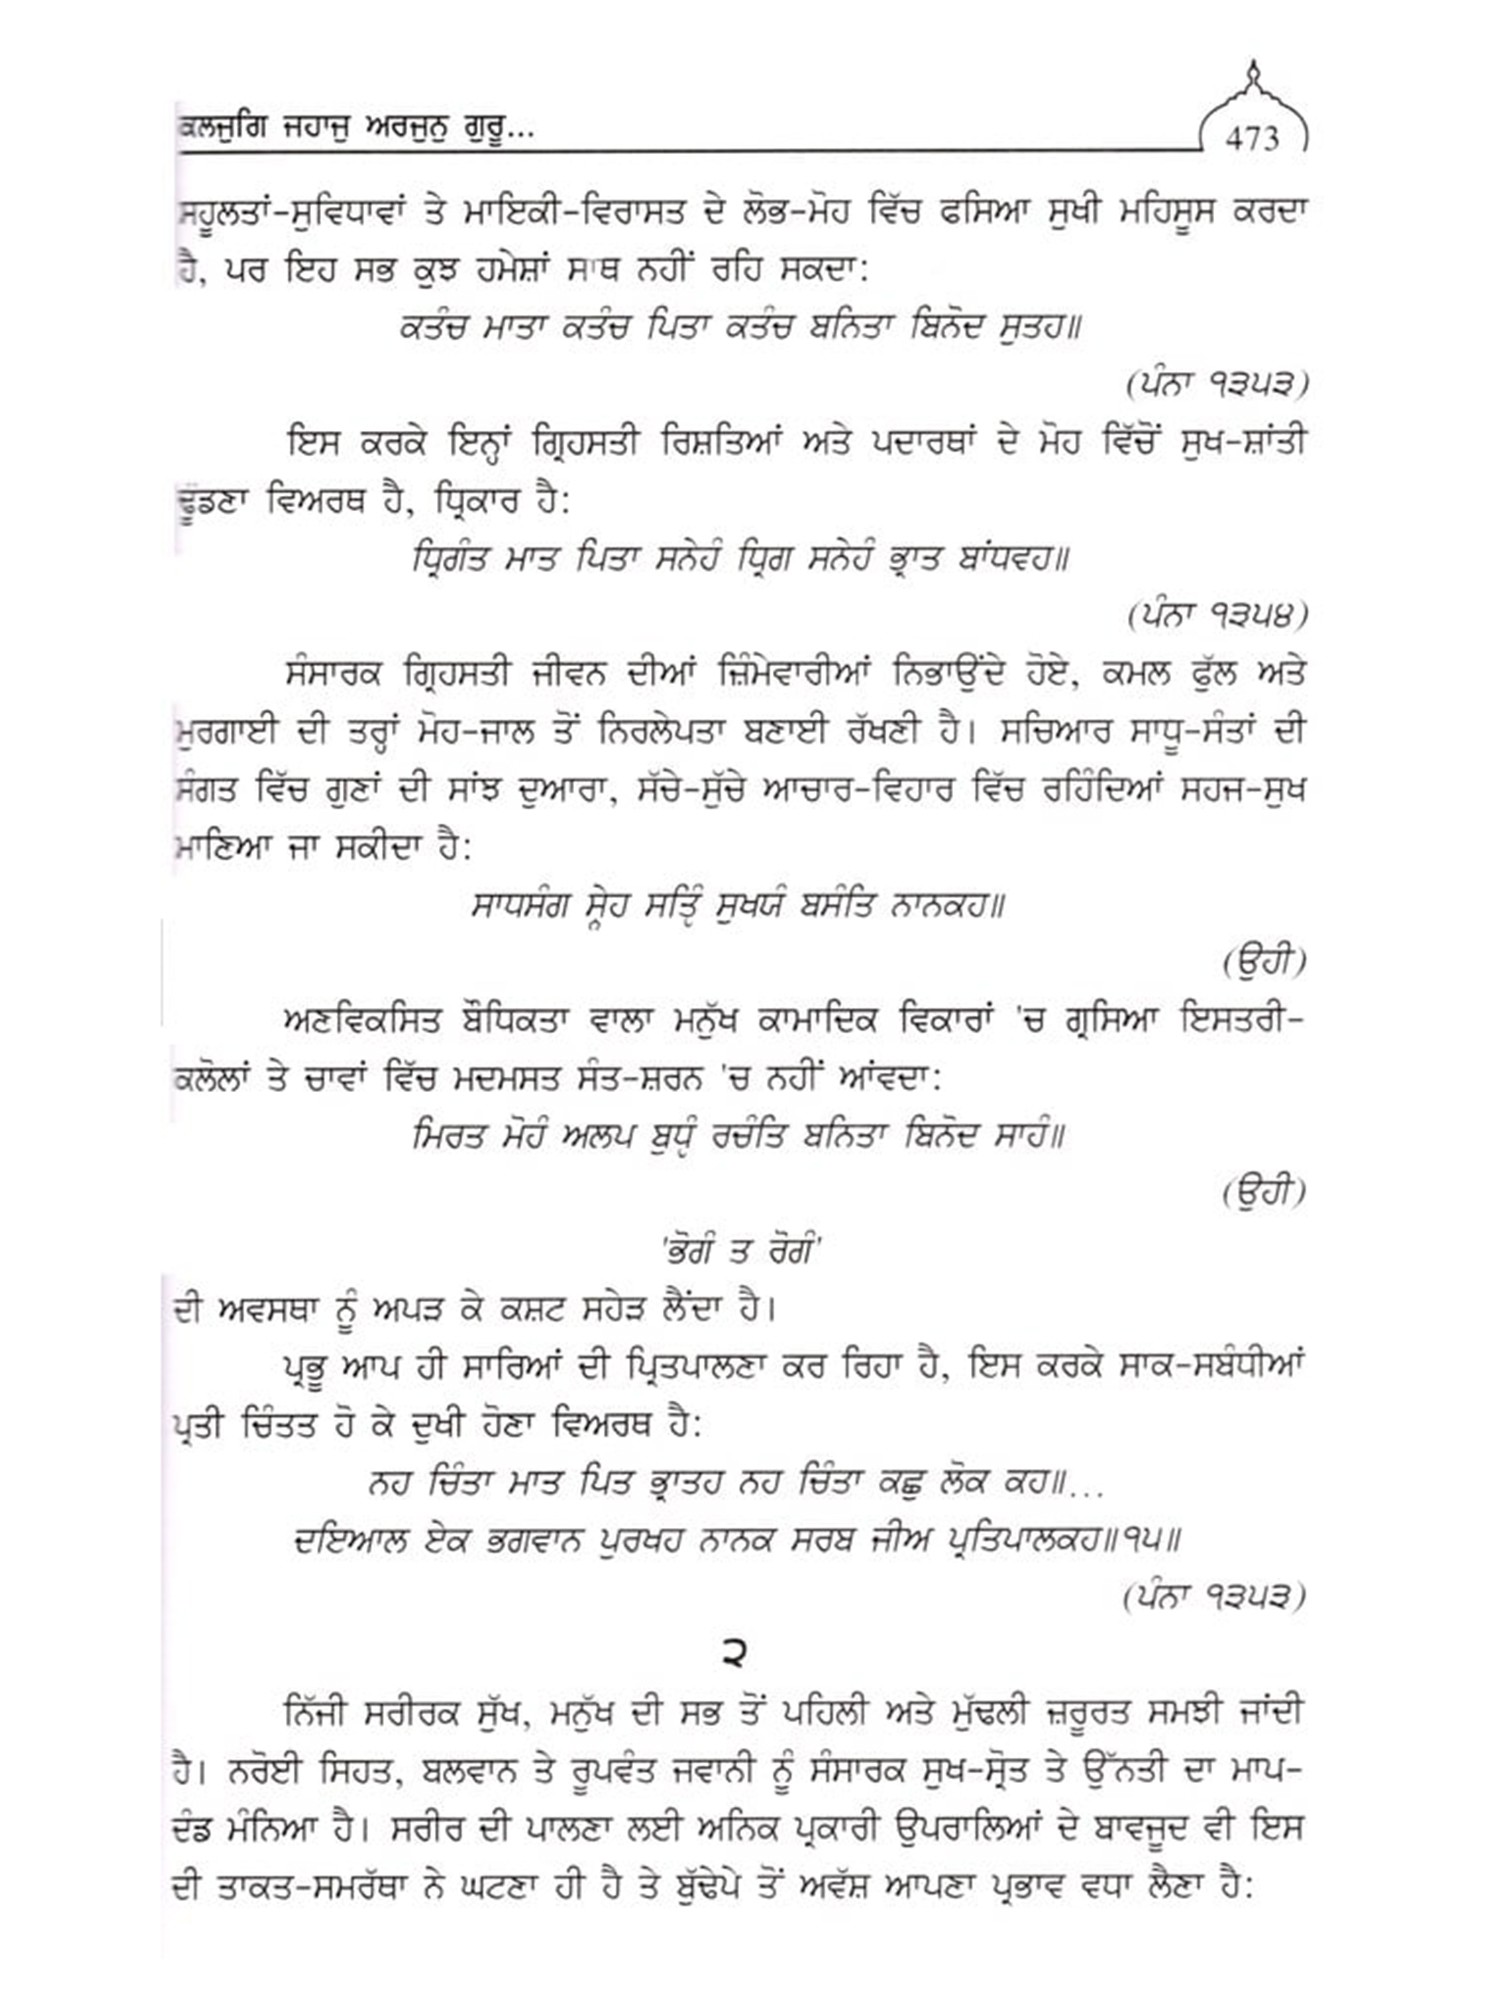 ਕਲਜੁਗਿ ਜਹਾਜੁ ਅਰਜੁਨੁ ਗੁਰੂ...
473
ਸਹੂਲਤਾਂ-ਸੁਵਿਧਾਵਾਂ ਤੇ ਮਾਇਕੀ-ਵਿਰਾਸਤ ਦੇ ਲੋਭ-ਮੋਹ ਵਿੱਚ ਫਸਿਆ ਸੁਖੀ ਮਹਿਸੂਸ ਕਰਦਾ
ਹੈ, ਪਰ ਇਹ ਸਭ ਕੁਝ ਹਮੇਸ਼ਾਂ ਸਾਥ ਨਹੀਂ ਰਹਿ ਸਕਦਾ:
ਕਤੰਚ ਮਾਤਾ ਕਤੰਚ ਪਿਤਾ ਕਤੰਚ ਬਨਿਤਾ ਬਿਨੋਦ ਸੁਤਹ॥
(ਪੰਨਾ ੧੩੫੩)
ਇਸ ਕਰਕੇ ਇਨ੍ਹਾਂ ਗ੍ਰਿਹਸਤੀ ਰਿਸ਼ਤਿਆਂ ਅਤੇ ਪਦਾਰਥਾਂ ਦੇ ਮੋਹ ਵਿੱਚੋਂ ਸੁਖ-ਸ਼ਾਂਤੀ
ਢੂੰਡਣਾ ਵਿਅਰਥ ਹੈ, ਧ੍ਰਿਕਾਰ ਹੈ:
ਧ੍ਰਿਗੰਤ ਮਾਤ ਪਿਤਾ ਸਨੇਹੰ ਧ੍ਰਿਗ ਸਨੇਹੰ ਭ੍ਰਾਤ ਬਾਂਧਵਹ॥
(ਪੰਨਾ ੧੩੫੪)
ਸੰਸਾਰਕ ਗ੍ਰਿਹਸਤੀ ਜੀਵਨ ਦੀਆਂ ਜ਼ਿੰਮੇਵਾਰੀਆਂ ਨਿਭਾਉਂਦੇ ਹੋਏ, ਕਮਲ ਫੁੱਲ ਅਤੇ
ਮੁਰਗਾਈ ਦੀ ਤਰ੍ਹਾਂ ਮੋਹ-ਜਾਲ ਤੋਂ ਨਿਰਲੇਪਤਾ ਬਣਾਈ ਰੱਖਣੀ ਹੈ। ਸਚਿਆਰ ਸਾਧੂ-ਸੰਤਾਂ ਦੀ
ਸੰਗਤ ਵਿੱਚ ਗੁਣਾਂ ਦੀ ਸਾਂਝ ਦੁਆਰਾ, ਸੱਚੇ-ਸੁੱਚੇ ਆਚਾਰ-ਵਿਹਾਰ ਵਿੱਚ ਰਹਿੰਦਿਆਂ ਸਹਜ-ਸੁਖ
ਮਾਣਿਆ ਜਾ ਸਕੀਦਾ ਹੈ:
ਸਾਧਸੰਗ ਸ੍ਨੇਹ ਸਤ੍ਹਿੰ ਸੁਖਯੰ ਬਸੰਤਿ ਨਾਨਕਹ॥
(ਉਹੀ)
ਅਣਵਿਕਸਿਤ ਬੌਧਿਕਤਾ ਵਾਲਾ ਮਨੁੱਖ ਕਾਮਾਦਿਕ ਵਿਕਾਰਾਂ 'ਚ ਗ੍ਰਸਿਆ ਇਸਤਰੀ-
ਕਲੋਲਾਂ ਤੇ ਚਾਵਾਂ ਵਿੱਚ ਮਦਮਸਤ ਸੰਤ-ਸ਼ਰਨ 'ਚ ਨਹੀਂ ਆਂਵਦਾ:
ਮਿਰਤ ਮੋਹੰ ਅਲਪ ਬੁਧੵੰ ਰਚੰਤਿ ਬਨਿਤਾ ਬਿਨੋਦ ਸਾਹੰ॥
(ਉਹੀ)
'ਭੋਗੰ ਤ ਰੋਗੰ'
ਦੀ ਅਵਸਥਾ ਨੂੰ ਅਪੜ ਕੇ ਕਸ਼ਟ ਸਹੇੜ ਲੈਂਦਾ ਹੈ।
ਪ੍ਰਭੂ ਆਪ ਹੀ ਸਾਰਿਆਂ ਦੀ ਪ੍ਰਿਤਪਾਲਣਾ ਕਰ ਰਿਹਾ ਹੈ, ਇਸ ਕਰਕੇ ਸਾਕ-ਸਬੰਧੀਆਂ
ਪ੍ਰਤੀ ਚਿੰਤਤ ਹੋ ਕੇ ਦੁਖੀ ਹੋਣਾ ਵਿਅਰਥ ਹੈ:
ਨਹ ਚਿੰਤਾ ਮਾਤ ਪਿਤ ਭ੍ਰਾਤਹ ਨਹ ਚਿੰਤਾ ਕਛੁ ਲੋਕ ਕਹ॥...
ਦਇਆਲ ਏਕ ਭਗਵਾਨ ਪੁਰਖਹ ਨਾਨਕ ਸਰਬ ਜੀਅ ਪ੍ਰਤਿਪਾਲਕਹ॥੧੫॥
(ਪੰਨਾ ੧੩੫੩)
੨
ਨਿੱਜੀ ਸਰੀਰਕ ਸੁੱਖ, ਮਨੁੱਖ ਦੀ ਸਭ ਤੋਂ ਪਹਿਲੀ ਅਤੇ ਮੁੱਢਲੀ ਜ਼ਰੂਰਤ ਸਮਝੀ ਜਾਂਦੀ
ਹੈ। ਨਰੋਈ ਸਿਹਤ, ਬਲਵਾਨ ਤੇ ਰੂਪਵੰਤ ਜਵਾਨੀ ਨੂੰ ਸੰਸਾਰਕ ਸੁਖ-ਸ੍ਰੋਤ ਤੇ ਉੱਨਤੀ ਦਾ ਮਾਪ-
ਦੰਡ ਮੰਨਿਆ ਹੈ। ਸਰੀਰ ਦੀ ਪਾਲਣਾ ਲਈ ਅਨਿਕ ਪ੍ਰਕਾਰੀ ਉਪਰਾਲਿਆਂ ਦੇ ਬਾਵਜੂਦ ਵੀ ਇਸ
ਦੀ ਤਾਕਤ-ਸਮਰੱਥਾ ਨੇ ਘਟਣਾ ਹੀ ਹੈ ਤੇ ਬੁੱਢੇਪੇ ਤੋਂ ਅਵੱਸ਼ ਆਪਣਾ ਪ੍ਰਭਾਵ ਵਧਾ ਲੈਣਾ ਹੈ: